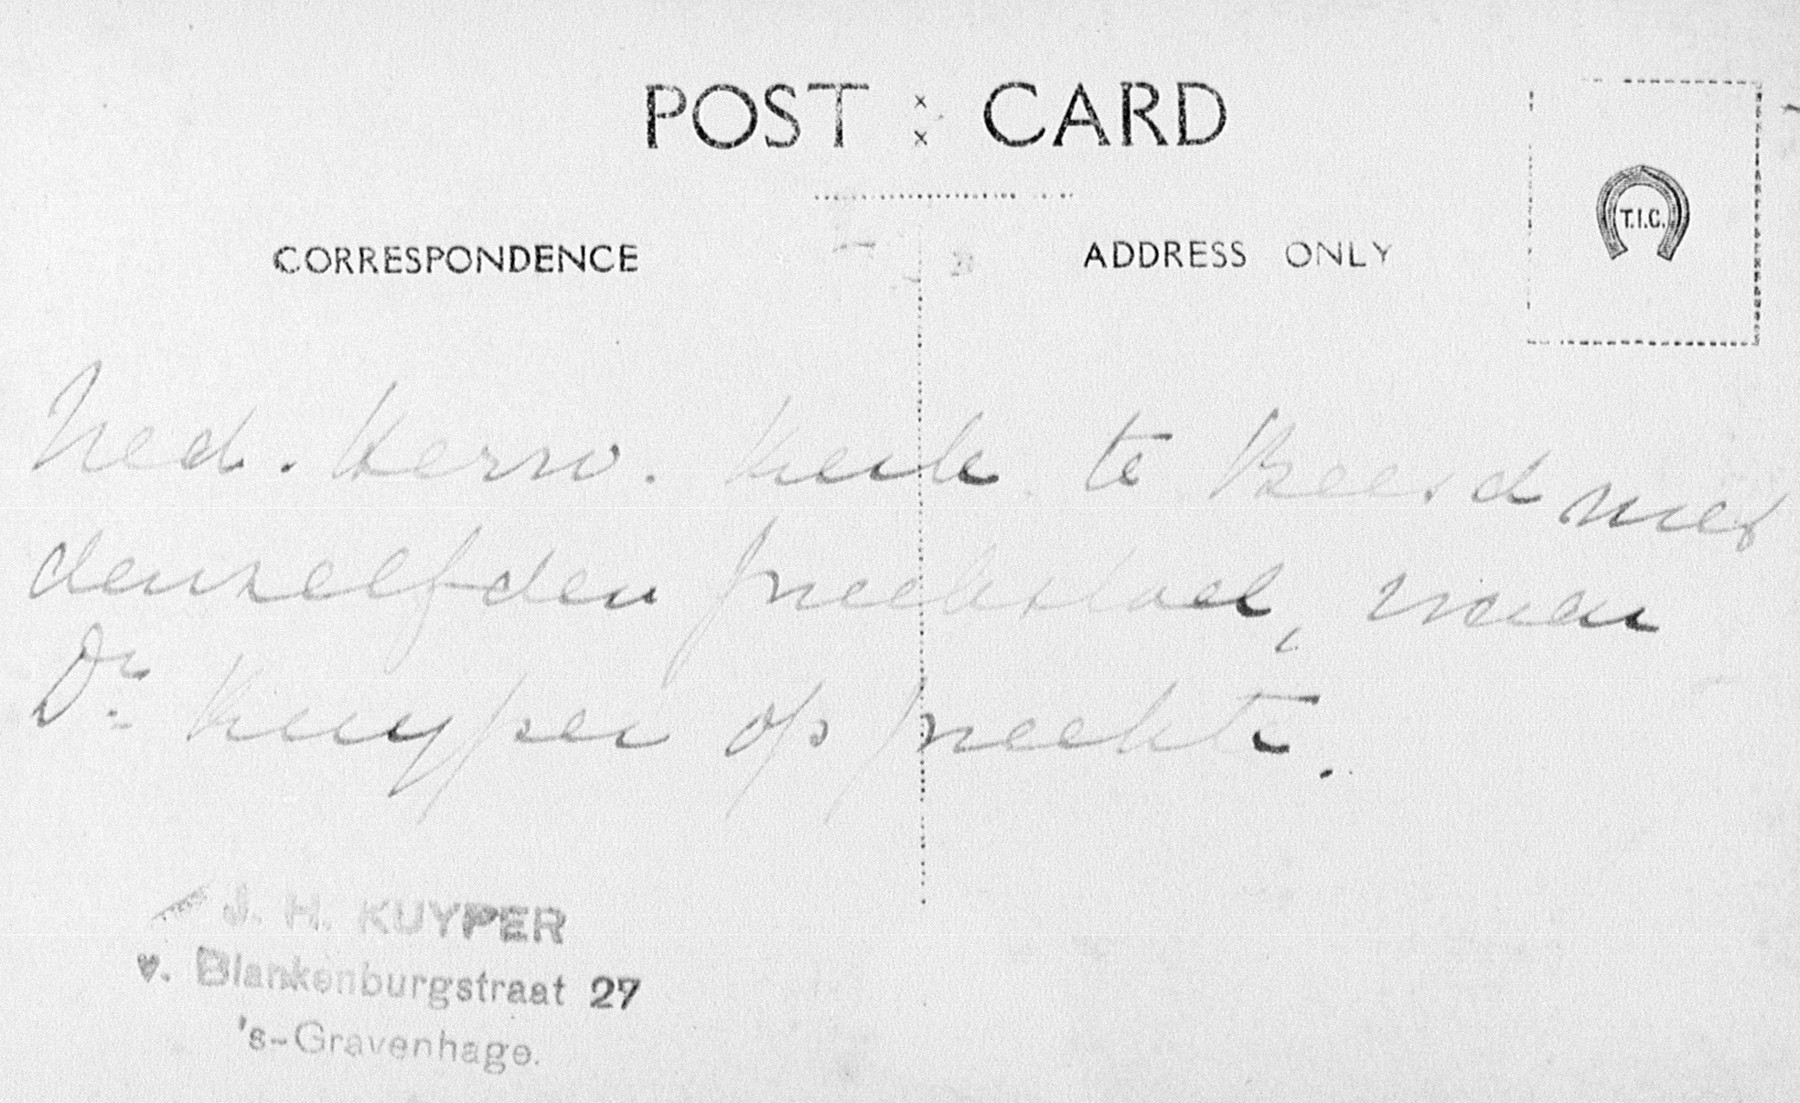 POST : CARD
CORRESPONDENCE
ADDRESS ONLY
T.I.C.
Ned. Herv. Kerk te Beesd met
denzelfden preekstoel, waar
Dr Kuyper op preekte.
J. H. KUYPER
v. Blankenburgstraat 27
's-Gravenhage.